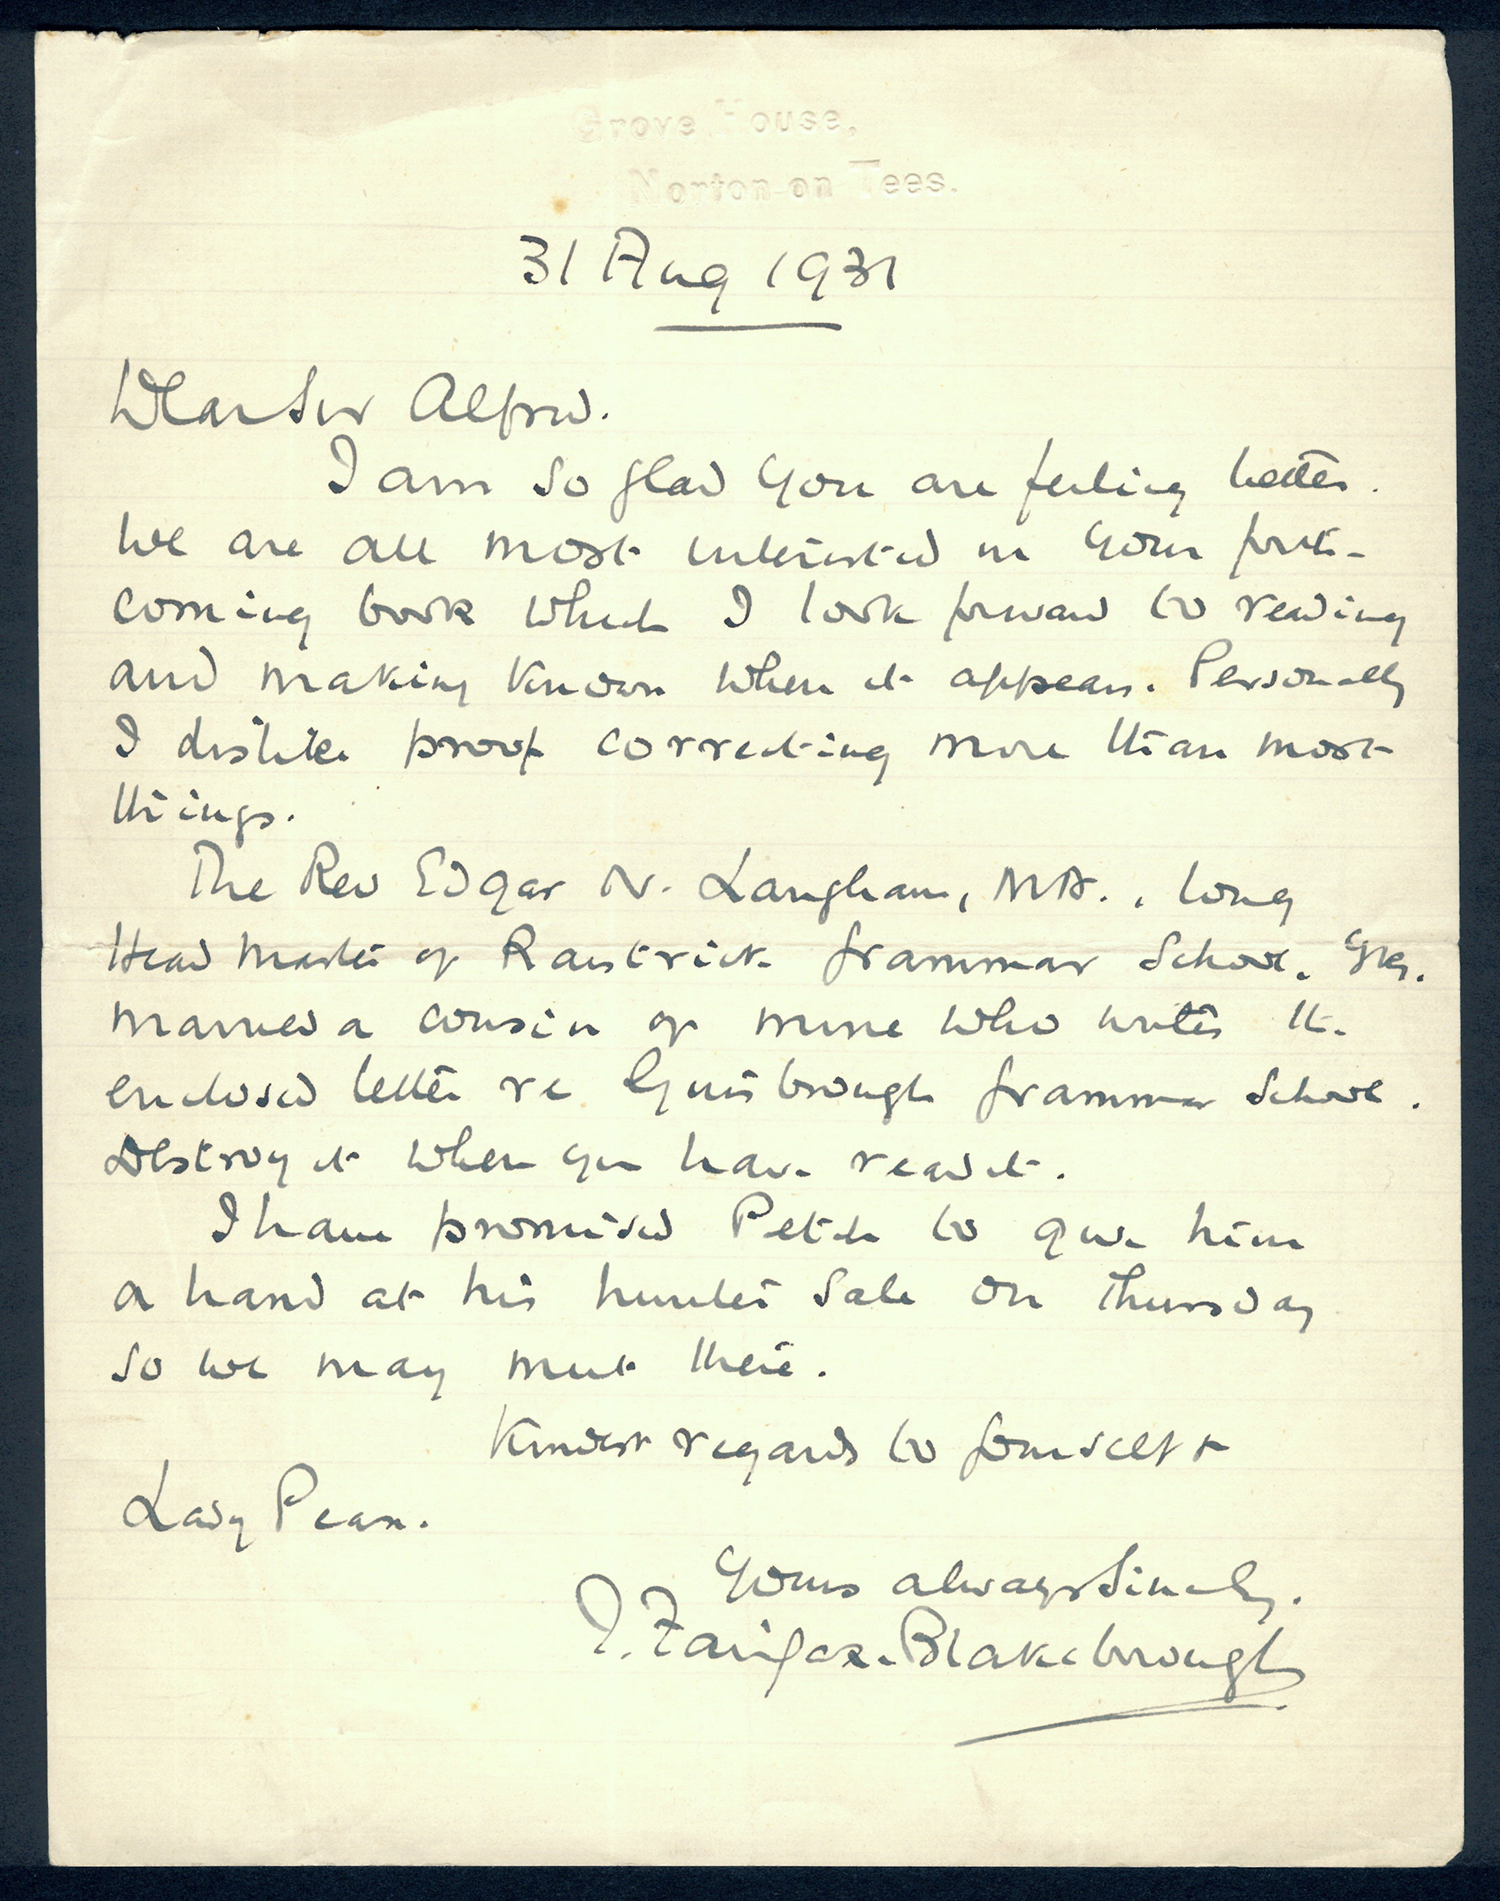 Grove House,
Norton-on-Tees.
31 Aug 1931
Dear Sir Alfred.
I am so glad you are feeling better.
We are all most interested in your forth-
coming book which I look forward to reading
and making known when it appears. Personally
I dislike proof correcting more than most
things.
The Rev Edgar N. Langham, MA., long
Head Master of Rastrick Grammar School, Yks.
married a cousin of mine who writes the
enclosed letter re Guisbrough Grammar School.
Destroy it when you have read it.
I have promised Petch to give him
a hand at his hunter sale on Thursday
so we may meet there.
Kindest regards to yourself +
Lady Pease.
Yours always Sincerely.
J. Fairfax-Blakeborough